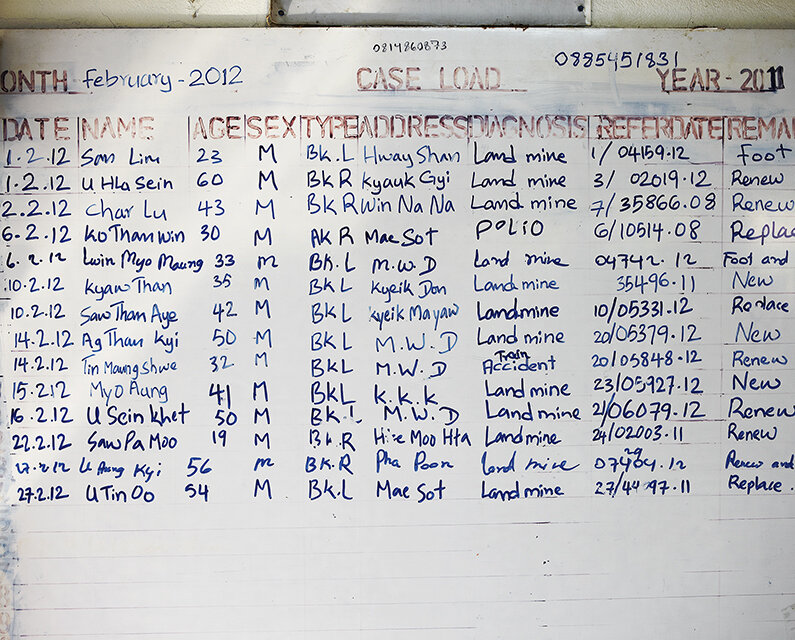 0814860873
0885451831
ONTH february-2012 CASE LOAD YEAR-2011
DATE NAME AGE SEX TYPE ADDRESS DIAGNOSIS REFERDATE REMA
1.2.12 San Lim 23 M BK.L Hway Shan Land mine 1/04159.12 Foot
1.2.12 U Hla Sein 60 M BK R Kyauk Gyi Land mine 3/02019.12 Renew
2.2.12 Char Lu 43 M BK R Win Na Na Land mine 7/35866.08 Renew
6.2.12 Ko Than Win 30 M AK R Mae Sot POLIO 6/10514.08 Replac
6.2.12 Lwin Myo Maung 33 m BK.L M.W.D Land mine 04742.12 Foot and
10.2.12 Kyaw Than 35 M BK L Kyeik Don Land mine 35496.11 New
10.2.12 Saw Than Aye 42 M BK L Kyeik Mayaw Landmine 10/05331.12 Replace
14.2.12 Ag Than Kyi 50 M BK L M.W.D Land mine 20/05379.12 New
14.2.12 Tin Maung Shwe 32 M BKL M.W.D Train Accident 20/05848.12 Renew
15.2.12 Myo Aung 41 M BKL K.K.K Land mine 23/05927.12 New
16.2.12 U Sein Khet 50 M BK.L M.W.D Land mine 21/06079.12 Renew
22.2.12 Saw Pa Moo 19 M BK.R Moo Hta Landmine 24/02003.11 Renew
27.2.12 U Aung Kyi 56 m BK.R Pha Poon Land mine Renew and
27.2.12 U Tin Oo 54 M BK.L Mae Sot Land mine Replace.